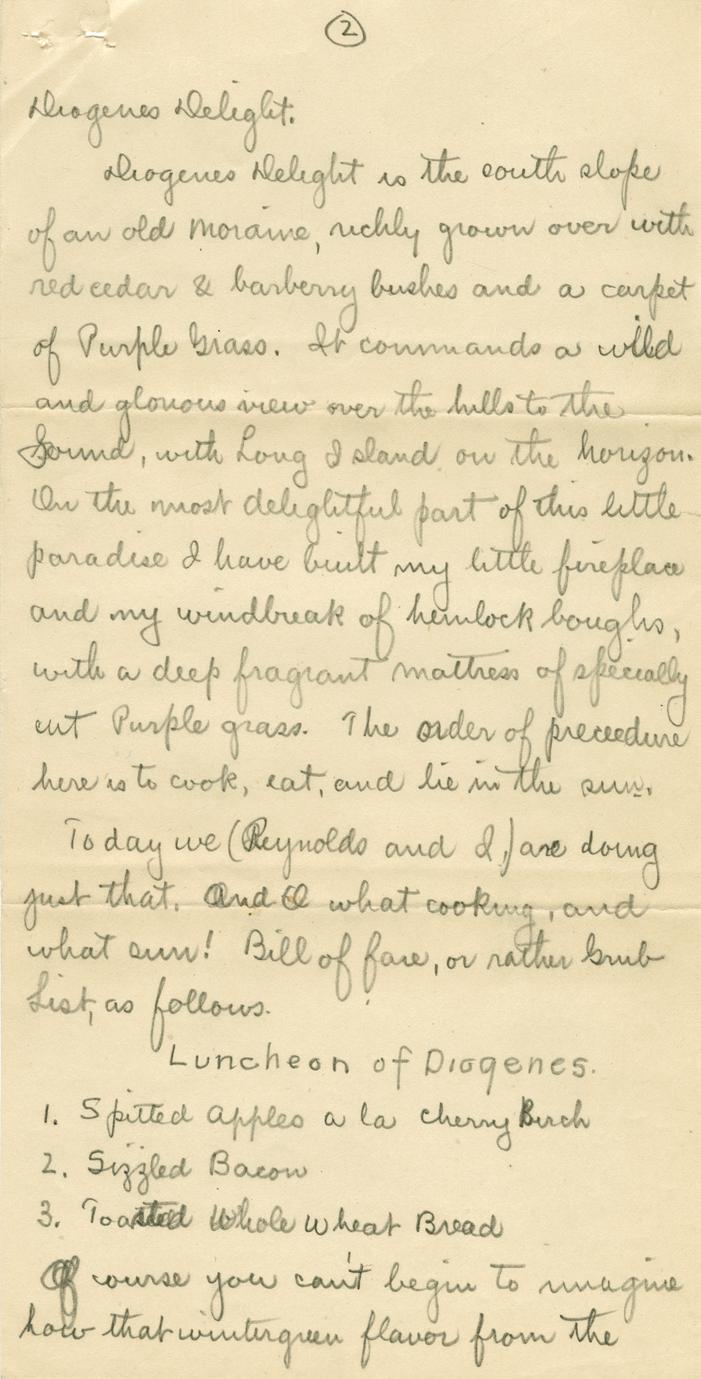 2
Diogenes Delight.
Diogenes Delight is the south slope
of an old moraine, richly grown over with
red cedar & barberry bushes and a carpet
of Purple Grass. It commands a wild
and glorious view over the hills to the
Sound, with Long Island on the horizon.
On the most delightful part of this little
paradise I have built my little fireplace
and my windbreak of hemlock boughs,
with a deep fragrant mattress of specially
cut Purple grass. The order of preceedure
here is to cook, eat, and lie in the sun.
Today we (Reynolds and I,) are doing
just that. And O what cooking, and
what sun! Bill of fare, or rather Grub
List, as follows.
Luncheon of Diogenes.
1. Spitted Apples a la Cherry Birch
2. Sizzled Bacon
3. Toasted Whole Wheat Bread
Of course you can't begin to imagine
how that wintergreen flavor from the